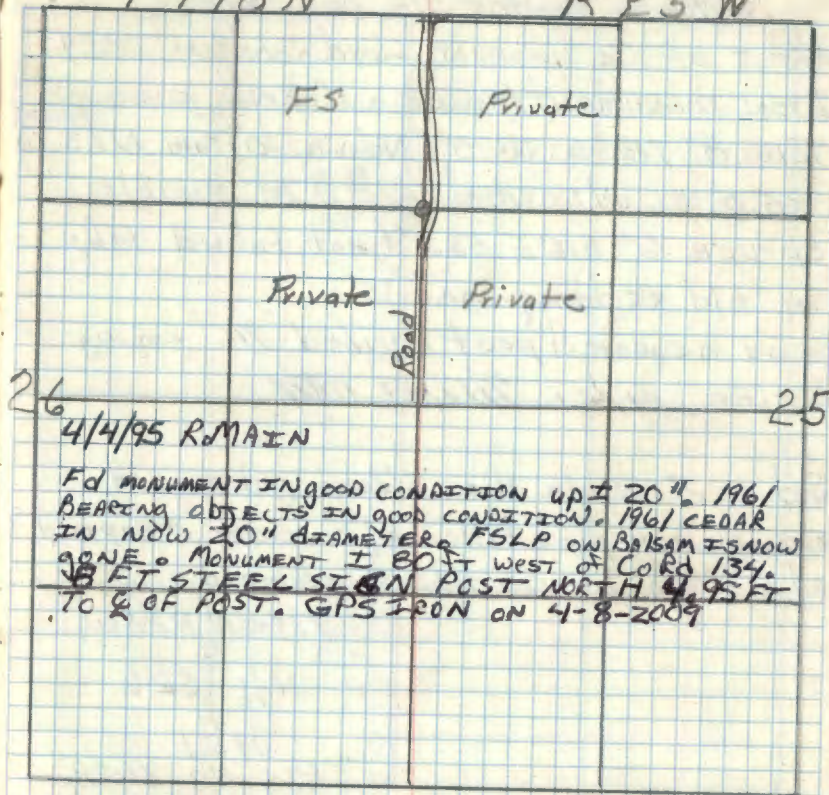 FS Private
Private Private
Road
26 25
4/4/95 R.MAIN
Fd MONUMENT IN gOOD CONDITION UP ± 20". 1961
BEARING OBJECTS IN gOOD CONDITION. 1961 CEDAR
IN NOW 20" DIAMETER. FSLP ON BAlSAM IS NOW
gONE. MONUMENT ± 80 FT WEST OF Co Rd 134.
8 FT STEEL SIGN POST NORTH 4.95 FT
TO ℄ OF POST. GPS IRON ON 4-8-2009